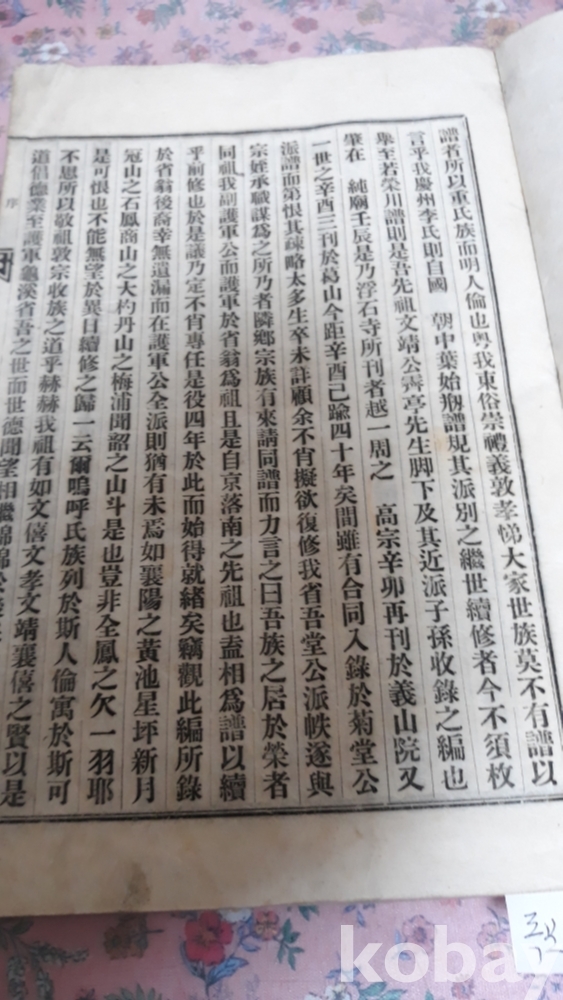 譜者所以重氏族而明人倫也粤我東俗崇禮義敦孝悌大家世族莫不有譜以
言乎我慶州李氏則自國 朝中葉始刱譜規其派別之繼世續修者今不須枚
擧至若榮川譜則是吾先祖文靖公霽亭先生脚下及其近派子孫收錄之編也
肇在 純廟壬辰是乃浮石寺所刊者越一周之 高宗辛卯再刊於義山院又
一世之辛酉三刊於葛山今距辛酉已踰四十年矣間雖有合同入錄於菊堂公
派譜而第恨其疎略太多生卒未註顧余不肖擬欲復修我省吾堂公派帙遂與
宗姪承職謀爲之所乃者隣鄉宗族有來請同譜而力言之曰吾族之居於榮者
同祖我副護軍公而護軍於省翁爲祖且是自京落南之先祖也盍相爲譜以續
乎前修也於是議乃定不肖專任是役四年於此而始得就緖矣竊觀此編所錄
於省翁後裔幸無遺漏而在護軍公全派則猶有未焉如襄陽之黃池星坪新月
冠山之石鳳商山之大杓丹山之梅浦聞韶之山斗是也豈非全鳳之欠一羽耶
是可恨也不能無望於異日續修之歸一云爾嗚呼氏族列於斯人倫寓於斯可
不思所以敬祖敦宗收族之道乎赫赫我祖有如文僖文孝文靖襄僖之賢以是
道侶德業至護軍龜溪省吾之世而世德聞望相繼錦錦
序
koba